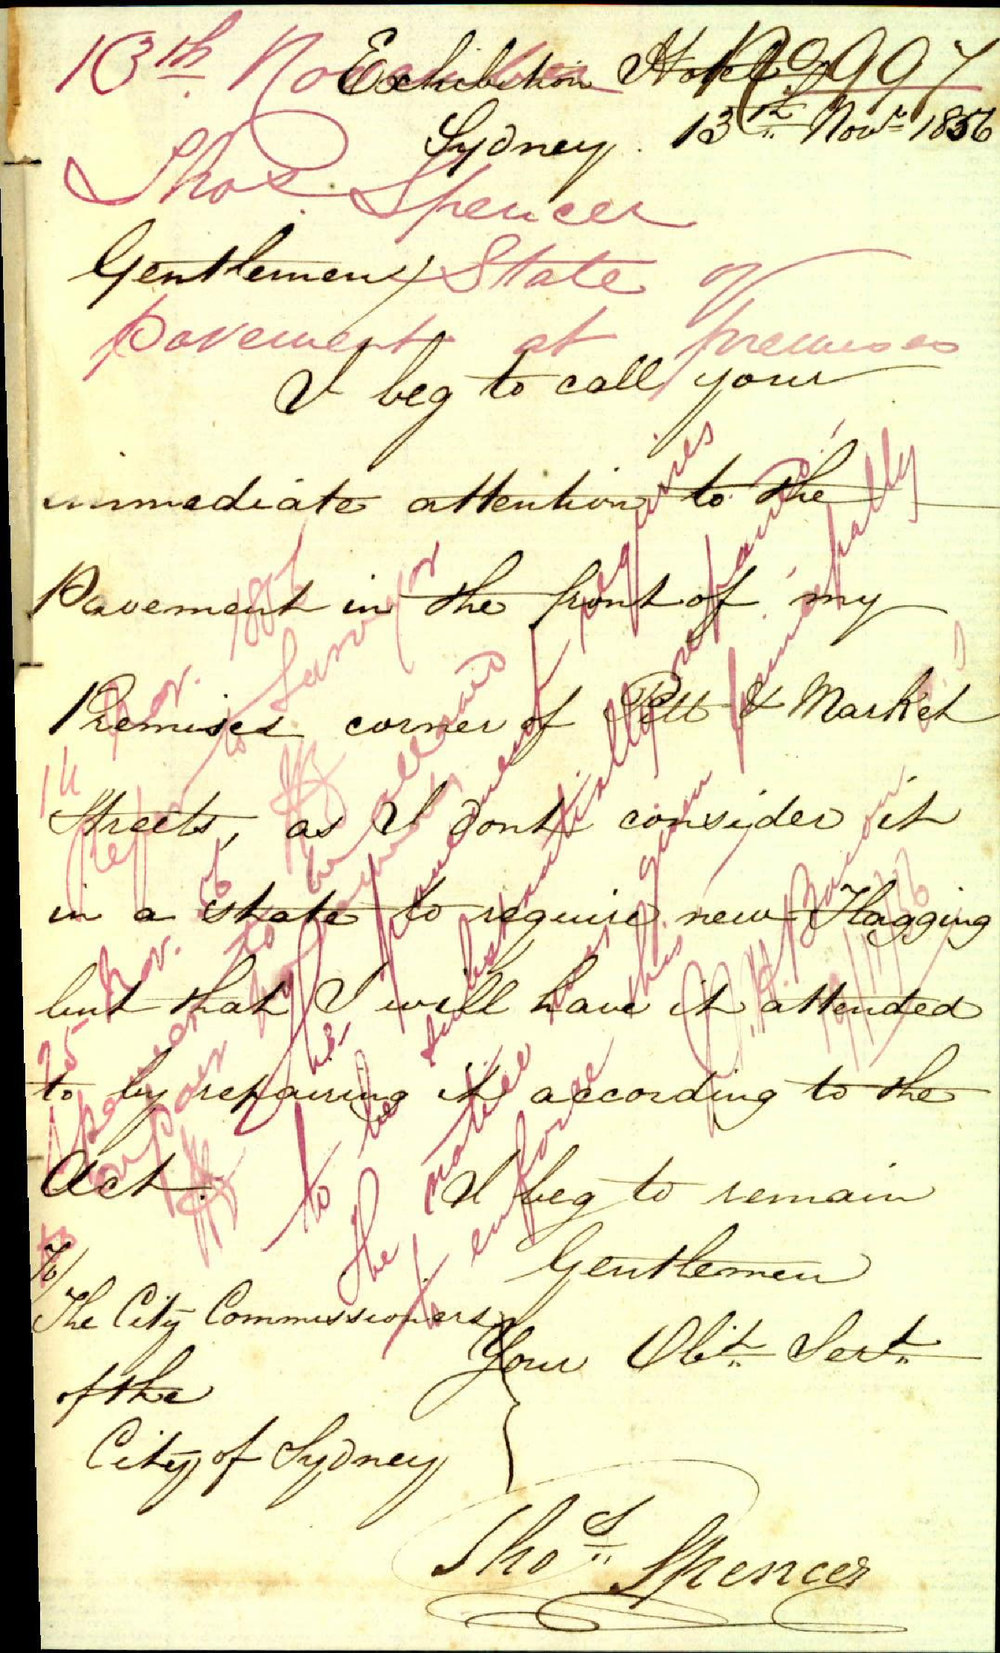 13th Nov
No 997
Exhibition Hotel
Sydney. 13th Novr 1856
Thos Spencer
Gentlemen
State of
pavement at premises
I beg to call your
immediate attention to the
Pavement in the front of my
Premises corner of Pitt & Market
Streets, as I dont consider it
in a state to require new Flagging
but that I will have it attended
to by repairing it according to the
Act.
I beg to remain
Gentlemen
Your Obt. Servt.
To/
The City Commissioners
of the
City of Sydney
Thos Spencer
14 Nov. 1856
Refer to Surveyor
25 Nov. 56
Spencer to be allowed
to repair his pavement
The pavement requires
to be substantially repaired
The notice has been given principally
to enforce this
19/11/56